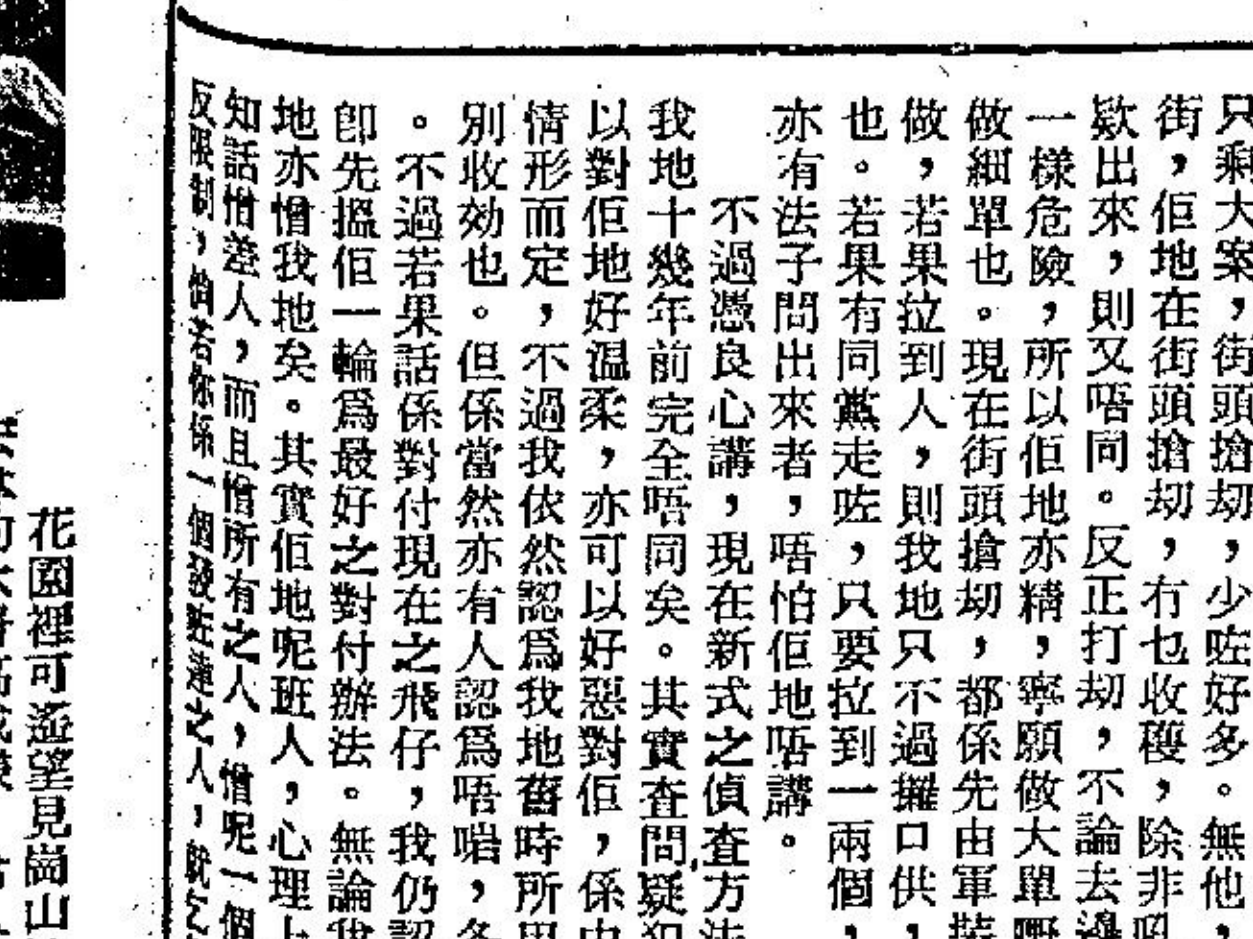 只剩大案，街頭搶劫，少咗好多。無他，
街，佢地在街頭搶刧，冇也收穫，除非
歎出來，則又唔同。反正打刧，不論去邊
一樣危險，所以佢地亦精，寧願做大單嘢
做細單也。現在街頭搶刧，都係先由軍裝
做，若果拉到人，則我地只不過攞口供，
也。若果有同黨走咗，只要拉到一兩個，
亦有法子問出來者，唔怕佢地唔講。
不過憑良心講，現在新式之偵查方法
我地十幾年前完全唔同矣。其實查問疑犯
以對佢地好溫柔，亦可以好惡對佢，係由
情形而定，不過我依然認爲我地舊時所用
別收効也。但係當然亦有人認爲唔啱，各
。不過若果話係對付現在之飛仔，我仍認
卽先搵佢一輪爲最好之對付辦法。無論我
地亦憎我地矣。其實佢地呢班人，心理上
知話憎差人，而且憎所有之人，憎呢一個
反限制，倘若你係一個發咗達之人，就
花園裡可遙望見崗山